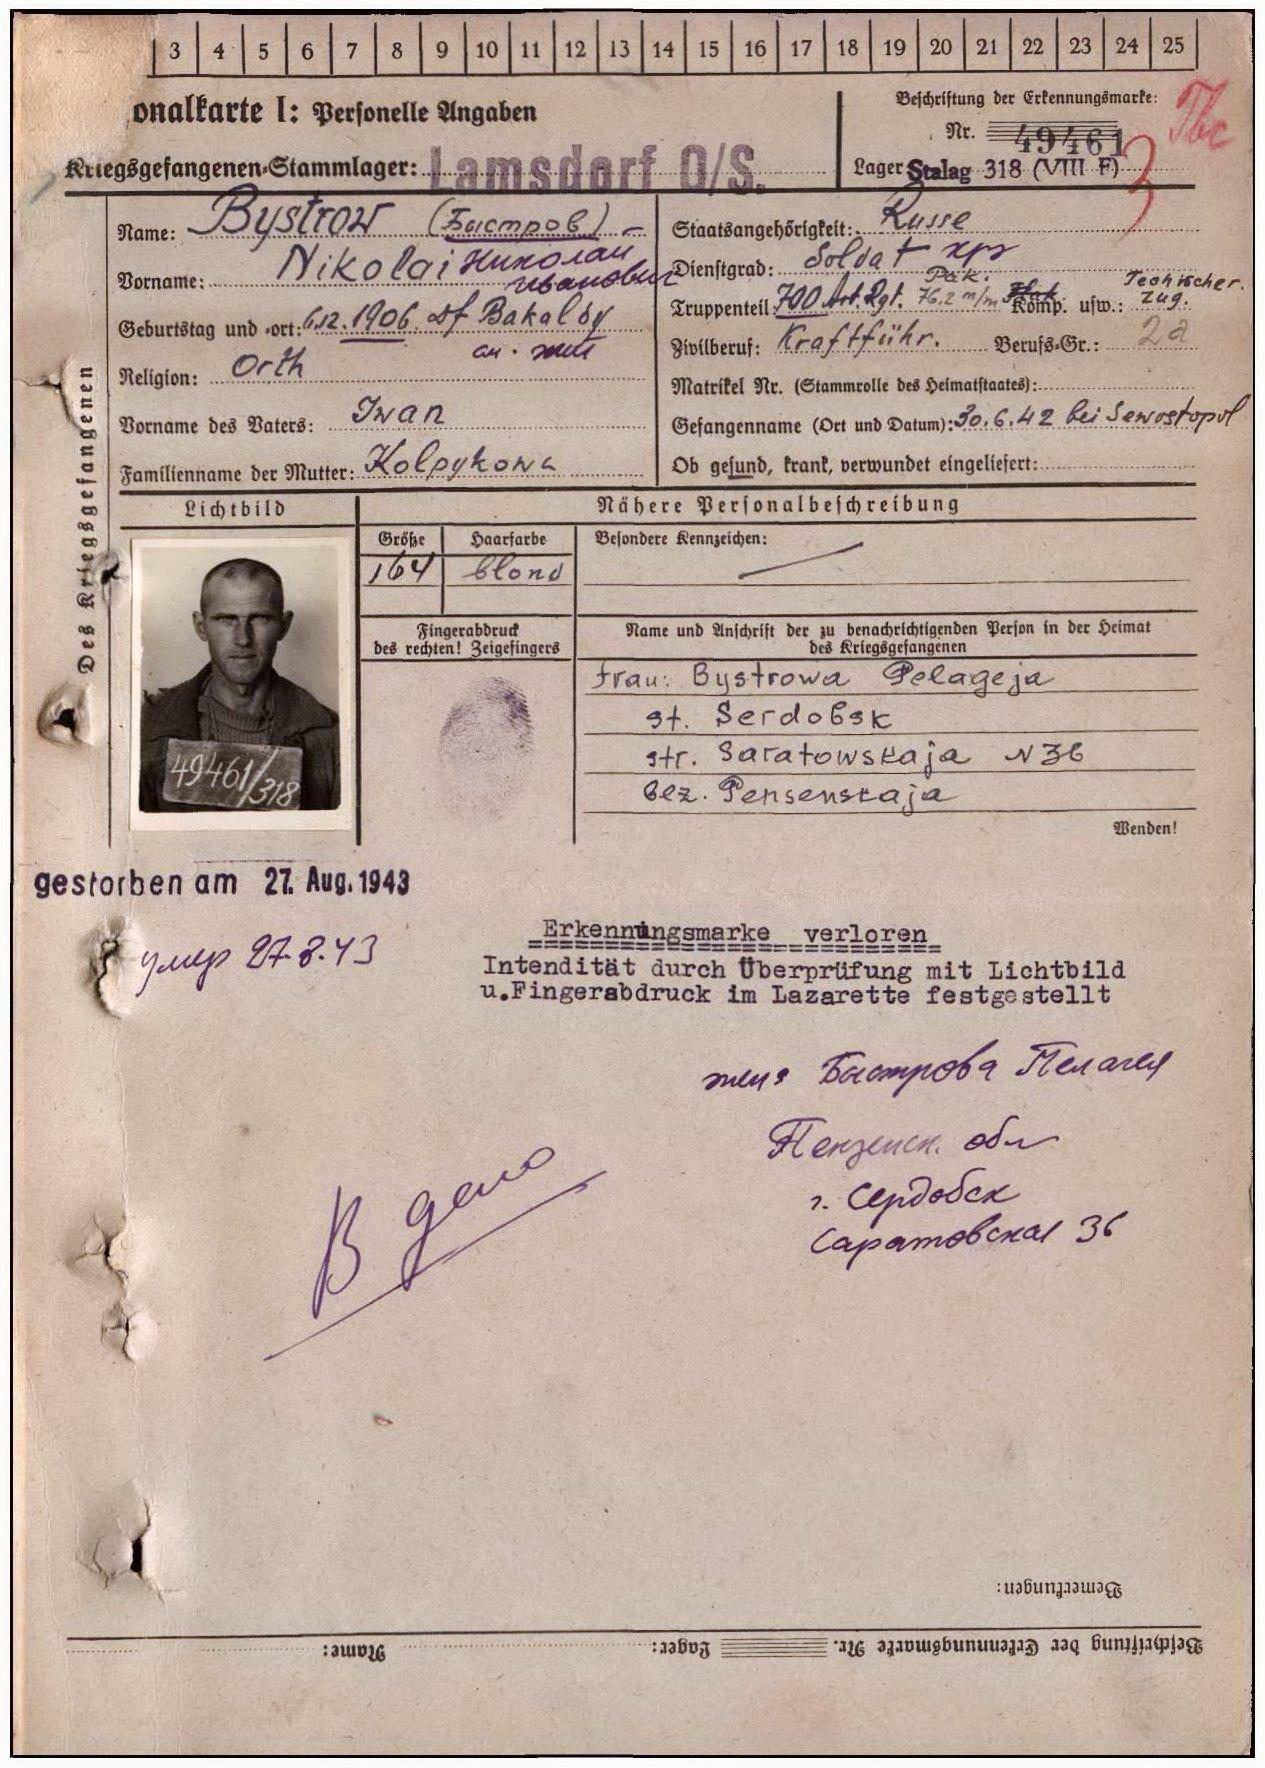 3 4 5 6 7 8 9 10 11 12 13 14 15 16 17 18 19 20 21 22 23 24 25
onalkarte I: Personelle Angaben
Kriegsgefangenen-Stammlager: Lamsdorf O/S.
Beschriftung der Erkennungsmarke:
Nr. 49461
Lager Stalag 318 (VIII F)
Tbc
3
Des Kriegsgefangenen
Name: Bystrow (Быстров)
Vorname: Nikolai Николай
Иванович
Geburtstag und -ort: 6.12.1906. Df Bakaldy
Religion: Orth
Vorname des Vaters: Iwan
Familienname der Mutter: Kolpykowa
Staatsangehörigkeit: Russe
Dienstgrad: Soldat кр
Pak. Technischer
Truppenteil 700 Art. Rgt. 76.2 m/m Komp. usw.: Zug.
Zivilberuf: Kraftführ. Berufs-Gr.: 2a
Matrikel Nr. (Stammrolle des Heimatstaates):
Gefangenname (Ort und Datum): 30.6.42 bei Sewostopol
Ob gesund, krank, verwundet eingeliefert:
Lichtbild
Nähere Personalbeschreibung
Größe Haarfarbe Besondere Kennzeichen:
164 blond
Fingerabdruck
des rechten! Zeigefingers
Name und Anschrift der zu benachrichtigenden Person in der Heimat
des Kriegsgefangenen
Frau: Bystrowa Pelageja
st. Serdobsk
str. Saratowskaja N 36
bez. Pensenskaja
49461/318
Wenden!
gestorben am 27. Aug. 1943
умер 27.8.43
Erkennungsmarke verloren
Intendität durch Überprüfung mit Lichtbild
u.Fingerabdruck im Lazarette festgestellt
жена Быстрова Пелагея
Пензенск. обл
г. Сердобск
Саратовская 36
В дело
Bemerkungen:
Beschriftung der Erkennungsmarke Nr. Lager: Name: